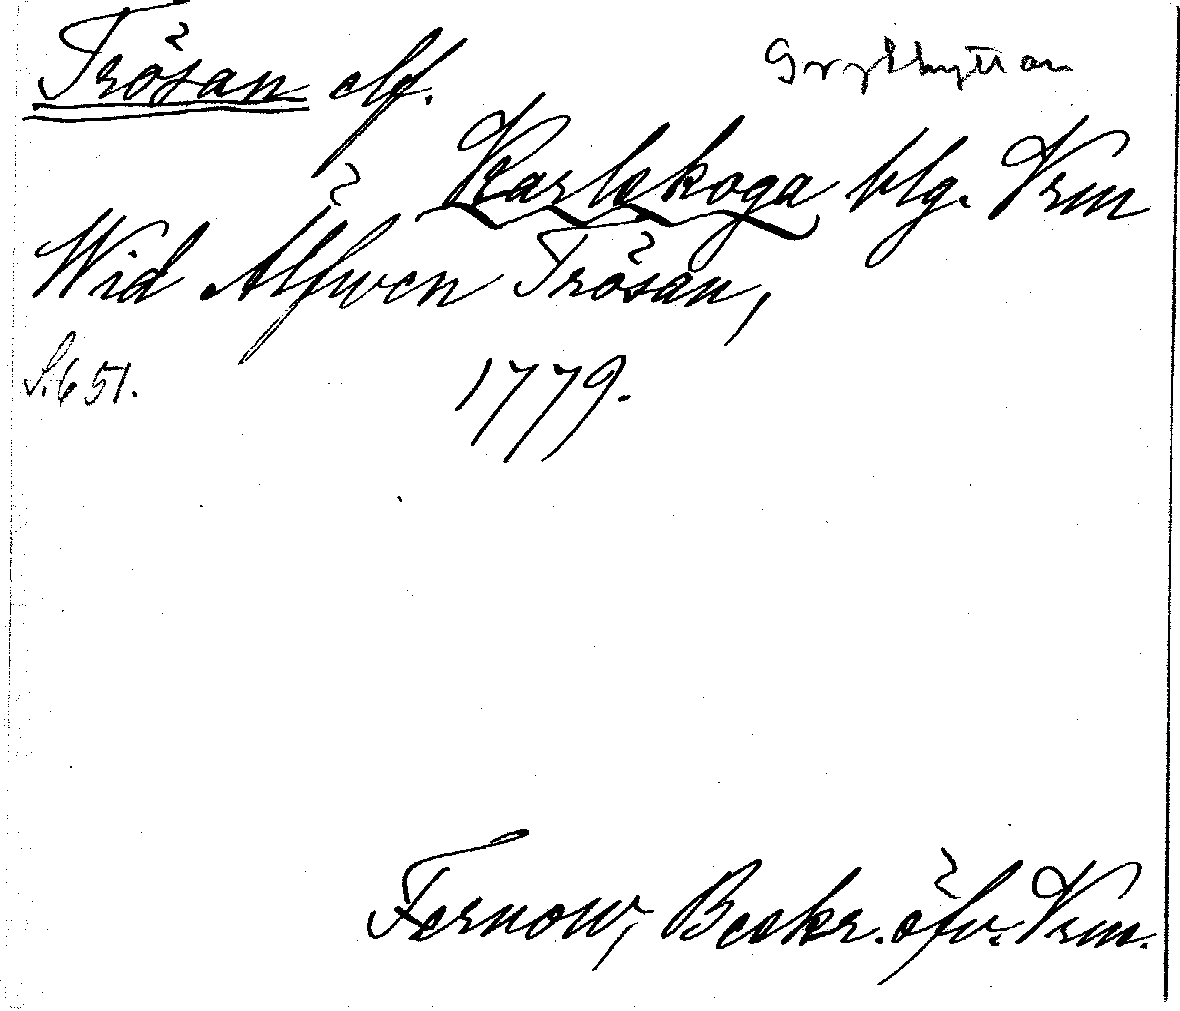 Trösan elf.
Grythyttan
Karlskoga blg. Vrm
Wid Älfwen Trösan,
S. 651.
1779.
Fernow, Beskr. öfv. Vrm.